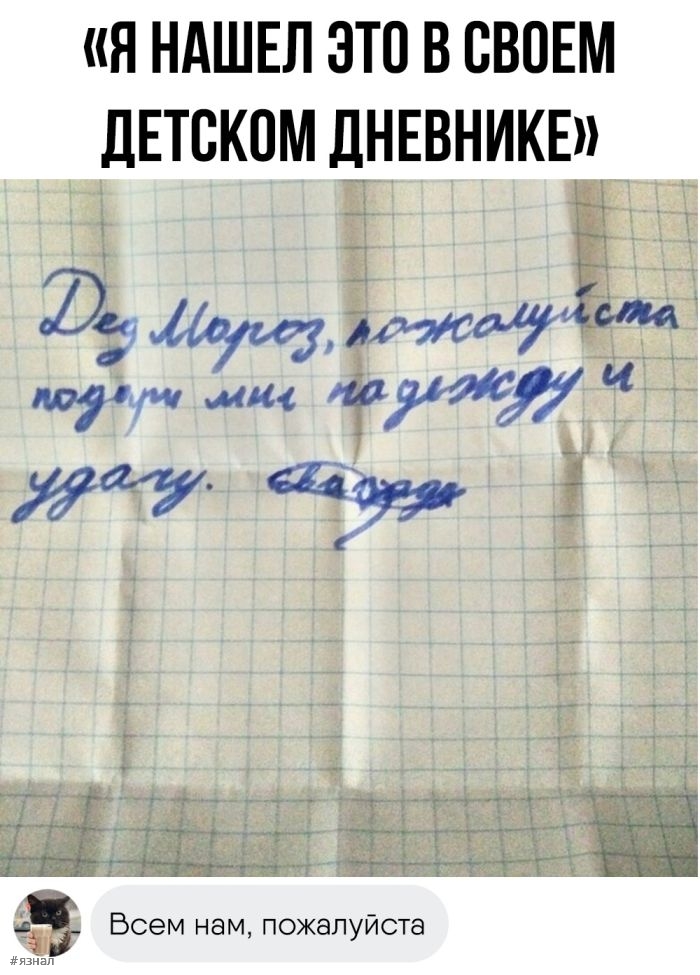 «Я НАШЕЛ ЭТО В СВОЕМ
ДЕТСКОМ ДНЕВНИКЕ»
Дед Мороз, пожалуйста
подари мне надежду и
удачу.
Всем нам, пожалуйста
#язнал